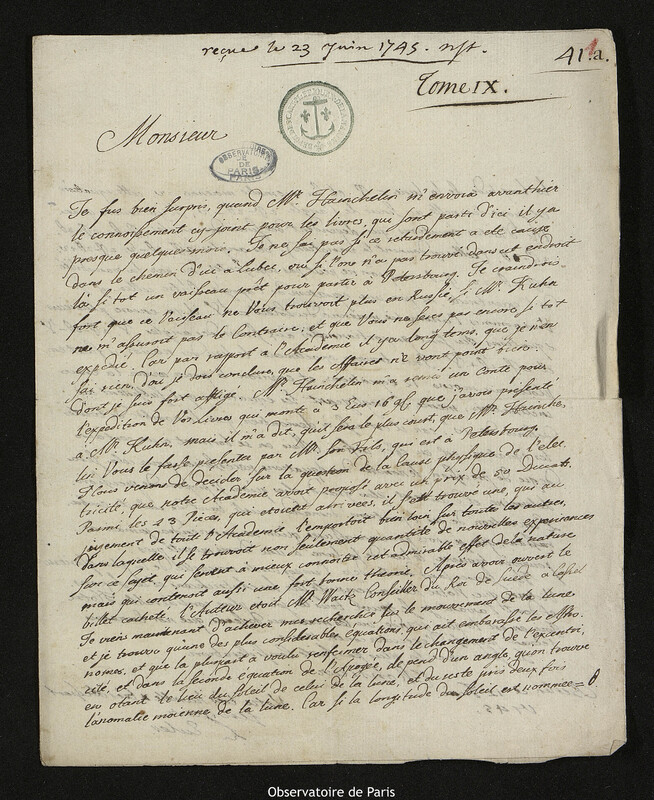 reçue le 23 Juin 1745. nst.
41.a.
Tome IX.
Monsieur
OBSERVATOIRE
DE
PARIS
Je fus bien surpris, quand Mr. Hainchelin m'envoia avanthier
le connoissement cy-joint pour les livres, qui sont parti d'ici il y a
presque quelques mois. Je ne sai pas si ce retardement a eté causé
dans le chemin d'ici à Lubec, ou si l'on n'a pas trouvé dans cet endroit
là si tot un vaisseau prêt pour partir à Petersbourg. Je craindrois
fort que ce Vaisseau ne Vous trouvoit plus en Russie, si Mr. Kuhn
ne m'assuroit pas le Contraire, et que Vous ne serés pas encore si tot
expedié. Car par rapport à l'Academie il y a long tems, que je n'en
sai rien, d'ou je dois conclure, que les Affaires n'y vont point bien.
dont je suis fort affligé. Mr. Hainchelin m'a remis un Conte pour
l'expedition de Vos Livres qui monte à 3 Ecus 16 gl. que j'avois presenté
à Mr. Kuhn, mais il m'a dit, qu'il sera le plus court, que Mr. Hainche-
lin Vous le fasse presenter par Mr. son Fils, qui est à Petersbourg.
Nous venons de decider sur la question de la cause physique de l'elec-
tricité, que notre Academie avoit proposé avec un prix de 50 Ducats.
Parmi les 23 Pieces, qui etoient arrivées, il s'est trouvé une, qui au
jugement de tout l'Academie l'emportoit bien loin sur toutes les autres,
dans laquelle il se trouvoit non seulement quantité de nouvelles experiences
sur ce sujet, qui servent à mieux connoitre cet admirable effet de la nature
mais qui contenoit aussi une fort bonne theorie. Après avoir ouvert le
billet cacheté l'Auteur etoit Mr. Waitz Conseiller du Roi de Suede à Cassel
Je viens maintenant d'achever mes recherches sur le mouvement de la lune
et je trouve qu'une des plus considerables equations, qui ait embarassé les Astro-
nomes, et que la plupart a voulu renfermer dans le changement de l'excentri-
cité, et dans la seconde equation de l'Apogée, depend d'un angle, qu'on trouve
en otant le lieu du soleil de celui de la lune, et du reste pris deux fois
l'anomalie moienne de la lune. Car si la longitude du soleil est nommée = θ
Observatoire de Paris